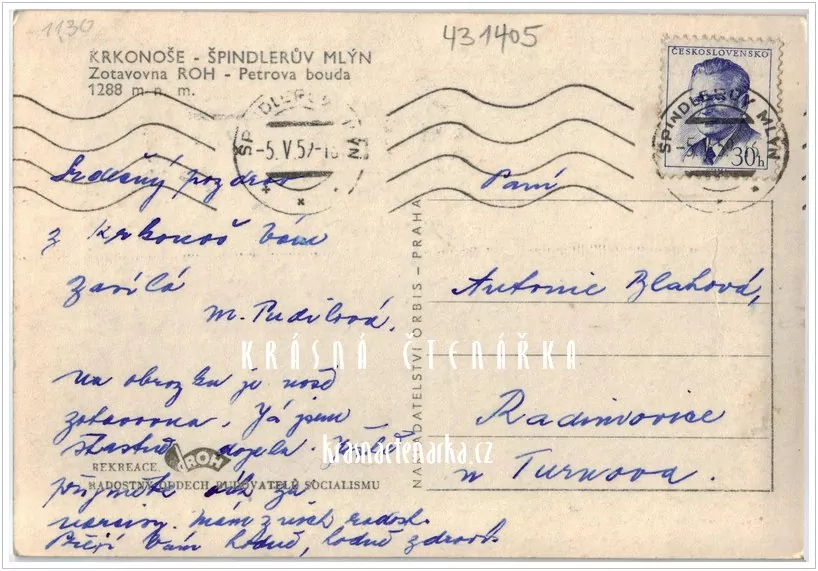 1130
431405
KRKONOŠE - ŠPINDLERŮV MLÝN
Zotavovna ROH - Petrova bouda
1288 m n. m.
ČESKOSLOVENSKO
30h
ŠPINDLERŮV MLÝN
-5.V.59
ŠPINDLERŮV MLÝN
-5.V.59
Srdečný pozdrav
z Krkonoš Vám
zasílá
M. Pudilová.
na obrázku je naše
zotavovna. Já jsem
šťastně dojela.
přijměte dík za
narcisy. Mám z nich radost.
Přeji Vám hodně, hodně zdraví.
REKREACE
ROH
RADOSTNÝ ODDECH BUDOVATELŮ SOCIALISMU
NAKLADATELSTVÍ ORBIS - PRAHA
Paní
Antonie Blahová,
Radimovice
u Turnova.
KRÁSNÁ ČTENÁŘKA
krasnactenarka.cz